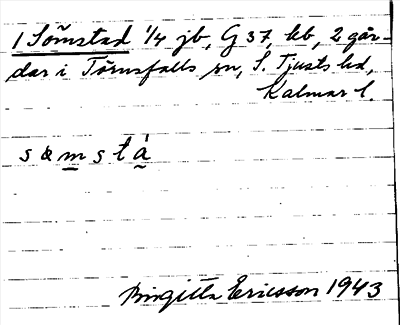 1 Sömstad 1/4 jb, G 37, kb, 2 går-
dar i Törnsfalls sn, S. Tjusts hd,
Kalmar l.
s œ m̲ s t á̰
Birgitta Ericsson 1943